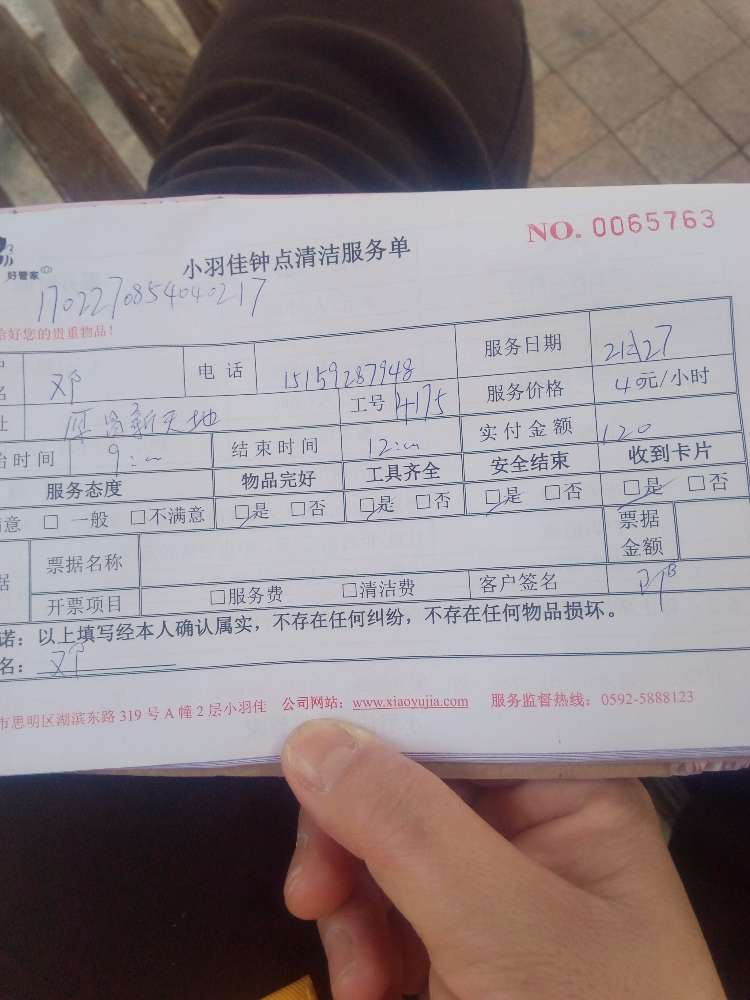 NO. 0065763
小羽佳钟点清洁服务单
好管家
1702270854040217
好您的贵重物品!
名 邓 电话 15159287948 服务日期
工号 4175 服务价格 40元/小时
新天地
时间 9: 结束时间 12: 实付金额 120
服务态度 物品完好 工具齐全 安全结束 收到卡片
意 □ 一般 □不满意 □是 □否 □是 □否 □是 □否 □是 □否
据 票据名称 票据金额
开票项目 □服务费 □清洁费 客户签名
诺：以上填写经本人确认属实，不存在任何纠纷，不存在任何物品损坏。
名： 邓
市思明区湖滨东路 319 号 A 幢 2 层小羽佳 公司网站：www.xiaoyujia.com 服务监督热线：0592-5888123